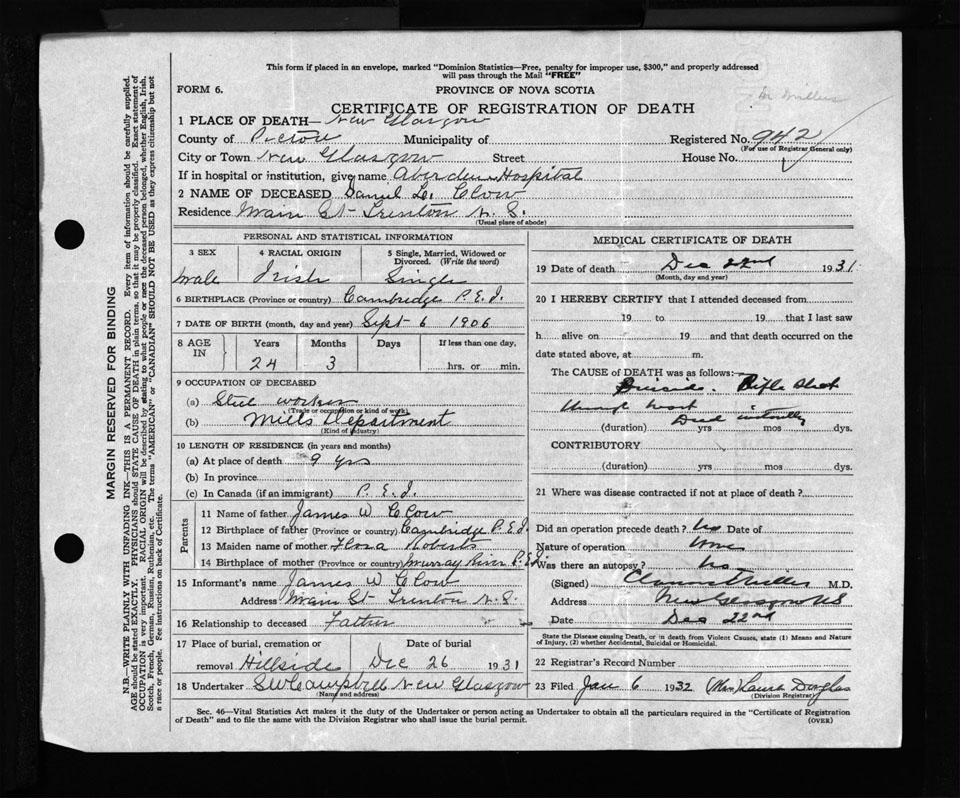 This form if placed in an envelope, marked "Dominion Statistics—Free, penalty for improper use, $300," and properly addressed
will pass through the Mail "FREE"
FORM 6.
PROVINCE OF NOVA SCOTIA
CERTIFICATE OF REGISTRATION OF DEATH
1 PLACE OF DEATH— New Glasgow
County of Pictou Municipality of Registered No. 942
(For use of Registrar General only)
City or Town New Glasgow Street House No.
If in hospital or institution, give name Aberdeen Hospital
2 NAME OF DECEASED Daniel L. Clow
Residence Main St Trenton N.S.
(Usual place of abode)
PERSONAL AND STATISTICAL INFORMATION
3 SEX 4 RACIAL ORIGIN 5 Single, Married, Widowed or
Divorced. (Write the word)
Male Irish Single
6 BIRTHPLACE (Province or country) Cambridge P.E.I.
7 DATE OF BIRTH (month, day and year) Sept 6 1906
8 AGE IN Years Months Days If less than one day,
24 3 hrs. or min.
9 OCCUPATION OF DECEASED
(a) Steel worker
(Trade or occupation or kind of work)
(b) Mills Department
(Kind of industry)
10 LENGTH OF RESIDENCE (in years and months)
(a) At place of death 9 yrs
(b) In province
(c) In Canada (if an immigrant) P.E.I.
Parents
11 Name of father James W Clow
12 Birthplace of father (Province or country) Cambridge P.E.I.
13 Maiden name of mother Flora Roberts
14 Birthplace of mother (Province or country) Murray River P.E.I.
15 Informant's name James W Clow
Address Main St Trenton N.S.
16 Relationship to deceased Father
17 Place of burial, cremation or Date of burial
removal Hillside Dec 26 1931
18 Undertaker SW Campbell New Glasgow
(Name and address)
MEDICAL CERTIFICATE OF DEATH
19 Date of death Dec 22nd 1931
(Month, day and year)
20 I HEREBY CERTIFY that I attended deceased from
19 to 19 that I last saw
h alive on 19 and that death occurred on the
date stated above, at m.
The CAUSE OF DEATH was as follows:—
Suicide. Rifle Shot
through heart Died instantly
(duration) yrs mos dys.
CONTRIBUTORY
(duration) yrs mos dys.
21 Where was disease contracted if not at place of death?
Did an operation precede death? No Date of
Nature of operation None
Was there an autopsy? No
(Signed) Miller M.D.
Address New Glasgow NS
Date Dec 22nd
State the Disease causing Death, or in death from Violent Causes, state (1) Means and Nature
of Injury, (2) whether Accidental, Suicidal or Homicidal.
22 Registrar's Record Number
23 Filed Jan 6 1932 (Mrs) Laura Douglas
(Division Registrar)
Sec. 46—Vital Statistics Act makes it the duty of the Undertaker or person acting as Undertaker to obtain all the particulars required in the "Certificate of Registration
of Death" and to file the same with the Division Registrar who shall issue the burial permit.
(OVER)
MARGIN RESERVED FOR BINDING
N.B.—WRITE PLAINLY WITH UNFADING INK—THIS IS A PERMANENT RECORD. Every item of information should be carefully supplied.
AGE should be stated EXACTLY. PHYSICIANS should STATE CAUSE OF DEATH in plain terms, so that it may be properly classified. Exact statement of
OCCUPATION is very important. RACIAL ORIGIN will be described by stating to what people or race the deceased person belonged, whether English, Irish,
Scotch, French, German, Russian, Ruthenian, etc. The terms "AMERICAN" or "CANADIAN" SHOULD NOT BE USED as they express citizenship but not
a race or people. See instructions on back of Certificate.